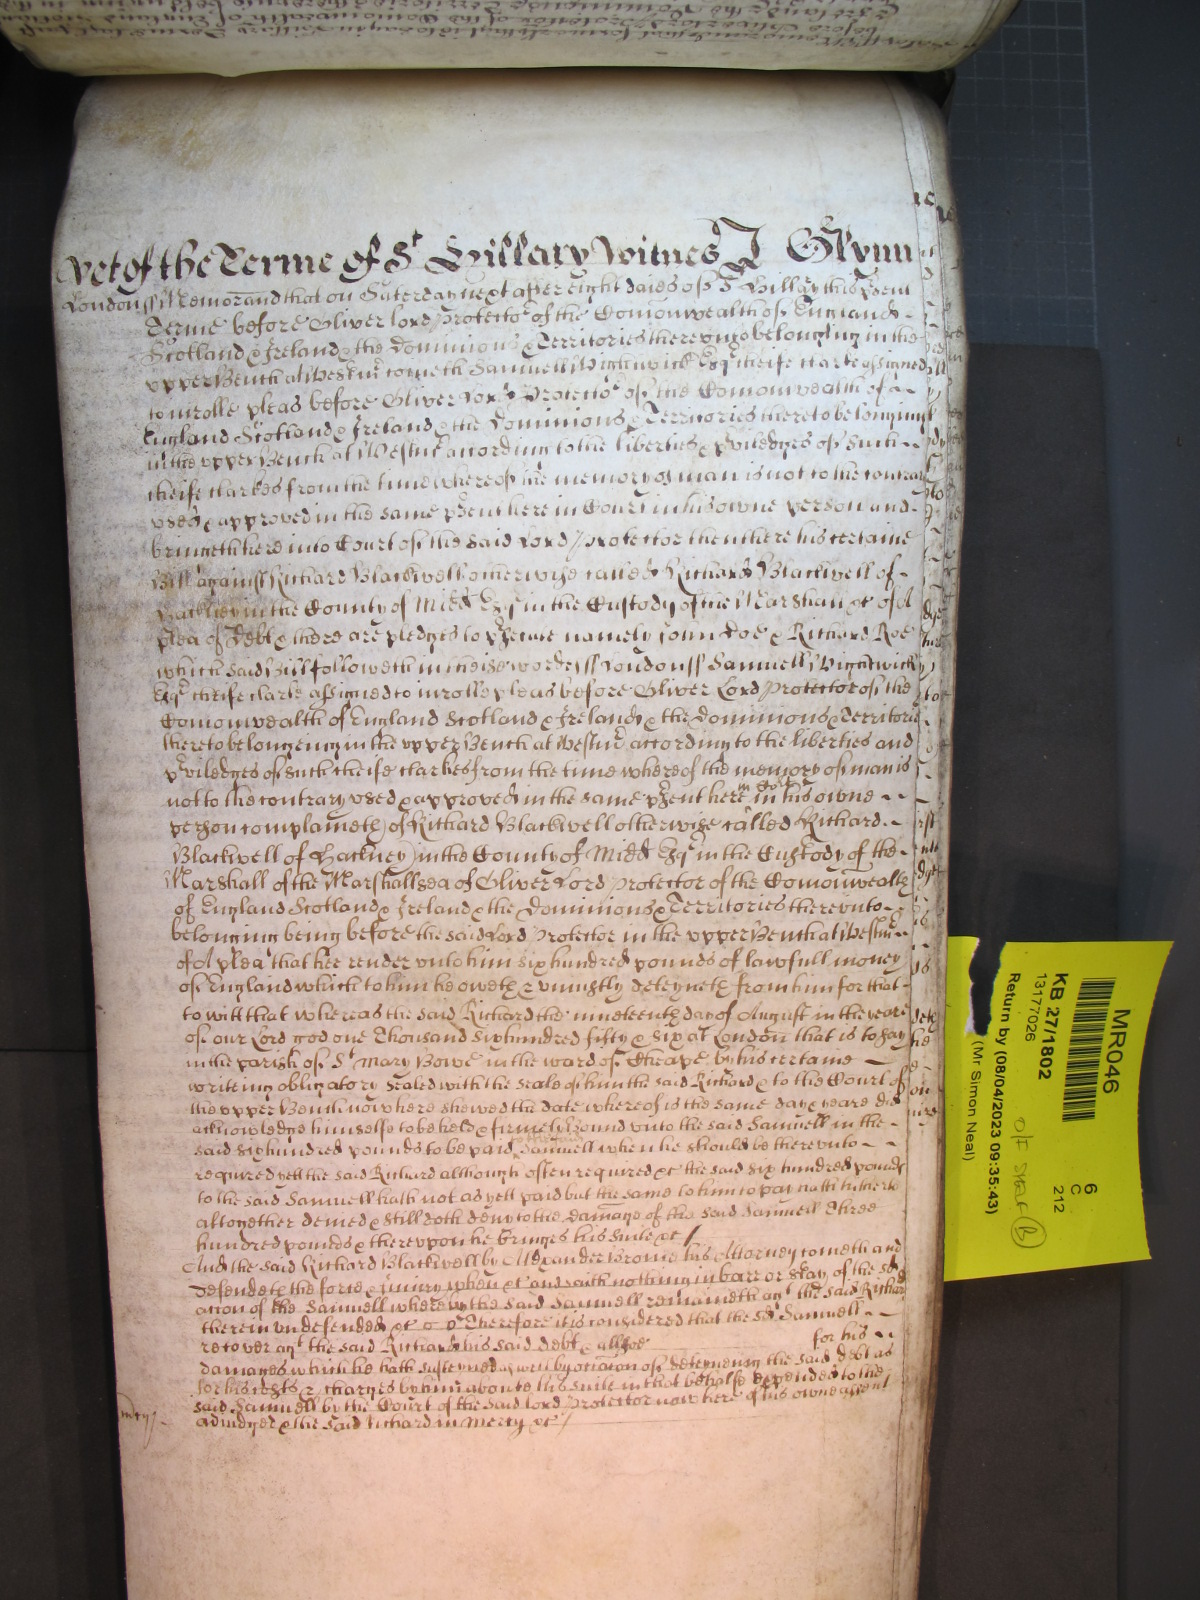 yet of the Terme of St Hillary Witnes J Glynn
London ss Memorand that on Saterday next after eight daies of St Hillary this psent
Terme before Oliver Lord Protector of the Comonwealth of England
Scotland & Ireland & the Dominions & Territories therevnto belonging in the
vpper Bench at Westmr cometh Samuell Wightwick Esqr cheife clarke assigned
to inrolle pleas before Oliver Lord Protector of the Comonwealth of
England Scotland & Ireland & the Dominions & Territories thereto belonging
in the vpper Bench at Westmr according to the liberties & pviledges of such
cheife clarkes from the time whereof the memory of man is not to the contrary
vsed & approved in the same psent here in Court in his owne person and
bringeth here into Court of the said Lord Protector then there his certaine
Bill against Richard Blackwell otherwise called Richard Blackwell of
Hackney in the County of Midd Esqr in the Custody of the Marshall &c of A
plea of Debt & there are pledges to psecute namely John Doe & Richard Roe
which said Bill followeth in theise wordes ss London ss Samuell Wightwick
Esqr cheife clarke assigned to inrolle pleas before Oliver Lord Protector of the
Comonwealth of England Scotland & Ireland & the Dominions & Territories
thereto belongeing in the vpper Bench at Westmr according to the liberties and
pviledges of such cheife clarkes from the time whereof the memory of man is
not to the contrary vsed & approved in the same psent here in Court in his owne
person complaineth of Richard Blackwell otherwise called Richard
Blackwell of Hackney in the County of Midd Esqr in the Custody of the
Marshall of the Marshallsea of Oliver Lord Protector of the Comonwealth
of England Scotland & Ireland & the Dominions & Territories therevnto
belonging being before the said Lord Protector in the vpper Bench at Westmr
of A plea that hee render vnto him six hundred pounds of lawfull money
of England which to him he oweth & viniustly deteyneth from him for that
to witt that whereas the said Richard the nineteenth day of August in the yeare
of our Lord god one Thousand six hundred fifty & six at London that is to say
in the parish of St Mary Bowe in the ward of Cheape by his certaine
writing obligatory sealed with the seale of him the said Richard & to the Court of
the vpper Bench now here shewed the date whereof is the same day & yeare did
acknowledge himselfe to be held & firmely bound vnto the said Samuell in the
said six hundred pounds to be paid to the said Samuell when he should be therevnto
required yett the said Richard although often required &c the said six hundred pounds
to the said Samuell hath not as yett paid but the same to him to pay hath hitherto
altogether denied & still doth deny to the damage of the said Samuell Three
hundred pounds & therevpon he bringes his suite &c
And the said Richard Blackwell by Alexander Brome his Attorney cometh and
defendeth the force & iniury when &c and saith nothing in barr or stay of the sd
accon of the Samuell whereby the said Samuell remaineth agt the said Richard
therein vndefended &c Therefore it is considered that the sd Samuell
recover agt the said Richard his said debt & allsoe for his
damages which he hath susteyned as well by occacon of deteyneing the said debt as
for his costs & charges by him aboute his suite in that behalfe expended to the
said Samuell by the Court of the said Lord Protector now here of his owne assent
adiudged & the said Richard in mercy &c
MR046
KB 27/1802
13177026
Return by (08/04/2023 09:35:43)
(Mr Simon Neal)
6
C
212